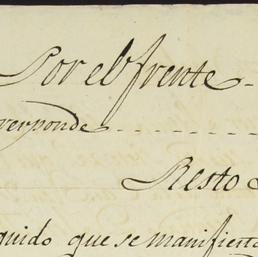 Por el frente
verponde
Resto
quido que se manifiesta